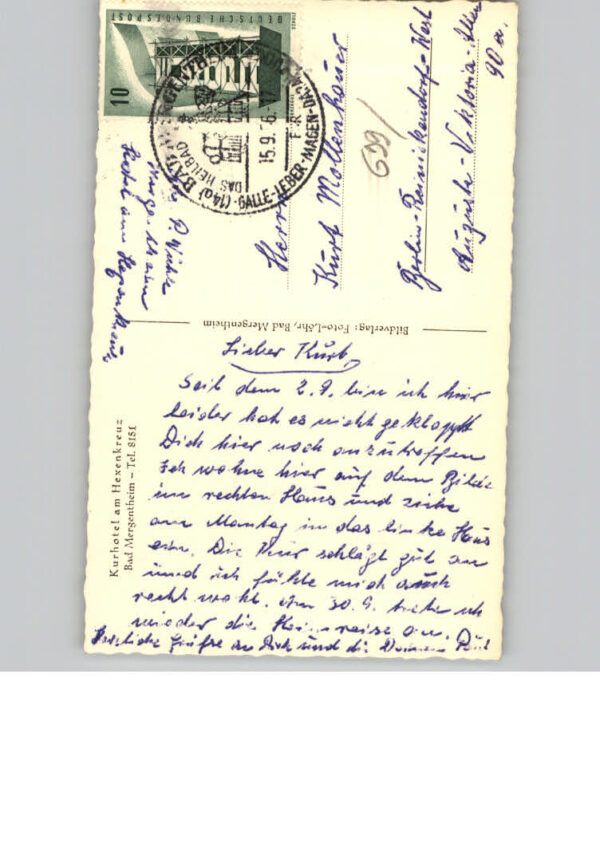 Kurhotel am Hexenkreuz
Bad Mergentheim – Tel. 8151
Lieber Kurt,
Seit dem 2.9. bin ich hier
leider hat es nicht geklappt
Dich hier noch anzutreffen
Ich wohne hier auf dem
im rechten Haus und ziehe
am Montag in das linke Haus
ein. Die Kur schlägt gut an
und ich fühle mich auch
recht wohl. Am 30.9. trete ich
wieder die Heimreise an.
Herzliche Grüße an Dich und die Deinen Paul
Bildverlag: Foto-Löhr, Bad Mergentheim
Mergentheim
Hotel am Hexenkreuz
DEUTSCHE BUNDESPOST
10
(14a) BAD MERGENTHEIM
DAS HEILBAD
15.9.56
FÜR
GALLE-LEBER-MAGEN-DARM
Herrn
Kurt Mollenhauer
Berlin-Reinickendorf-West
Auguste-Viktoria-Allee
90 a.
699/